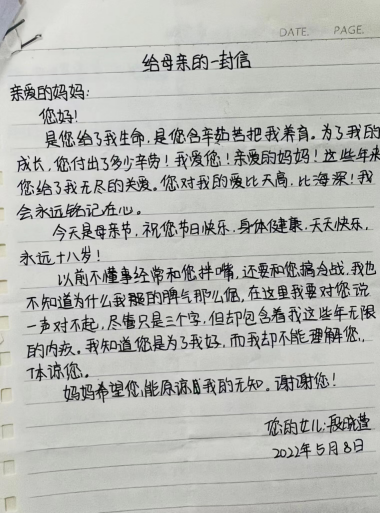 DATE. PAGE.
给母亲的一封信
亲爱的妈妈:
您好!
是您给了我生命,是您含辛茹苦把我养育。为了我的
成长,您付出了多少辛劳!我爱您!亲爱的妈妈!这些年来
您给了我无尽的关爱。您对我的爱比天高,比海深!我
会永远铭记在心。
今天是母亲节,祝您节日快乐,身体健康,天天快乐,
永远十八岁!
以前不懂事经常和您拌嘴,还要和您搞冷战,我也
不知道为什么我的脾气那么倔,在这里我要对您说
一声对不起,尽管只是三个字,但却包含着我这些年无限
的内疚。我知道您是为了我好,而我却不能理解您,
体谅您。
妈妈希望您能原谅我的无知。谢谢您!
您的女儿:段晓萱
2022年5月8日